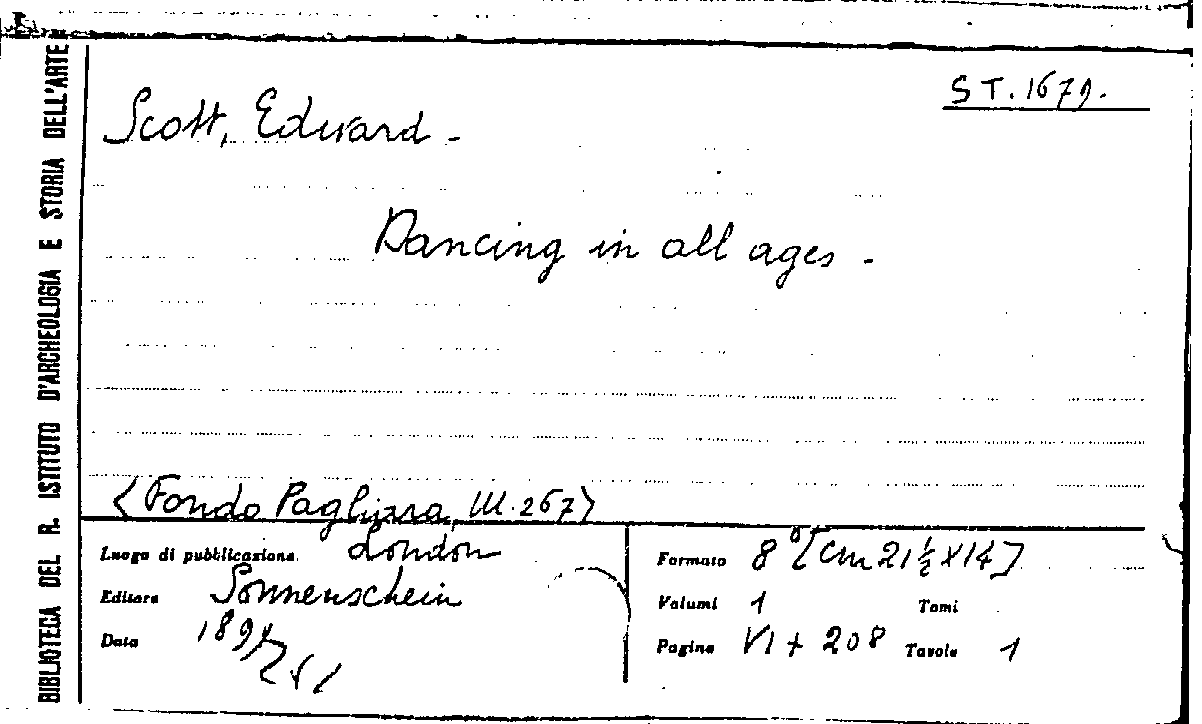 BIBLIOTECA DEL R. ISTITUTO D'ARCHEOLOGIA E STORIA DELL'ARTE
ST. 1679.
Scott, Edward -
Dancing in all ages -
<Fondo Pagliara, III. 267>
Luogo di pubblicazione London
Editore Sonnenschein
Data
Formato 8° [cm 21½ x 14]
Volumi 1 Tomi
Pagine VI + 208 Tavole 1